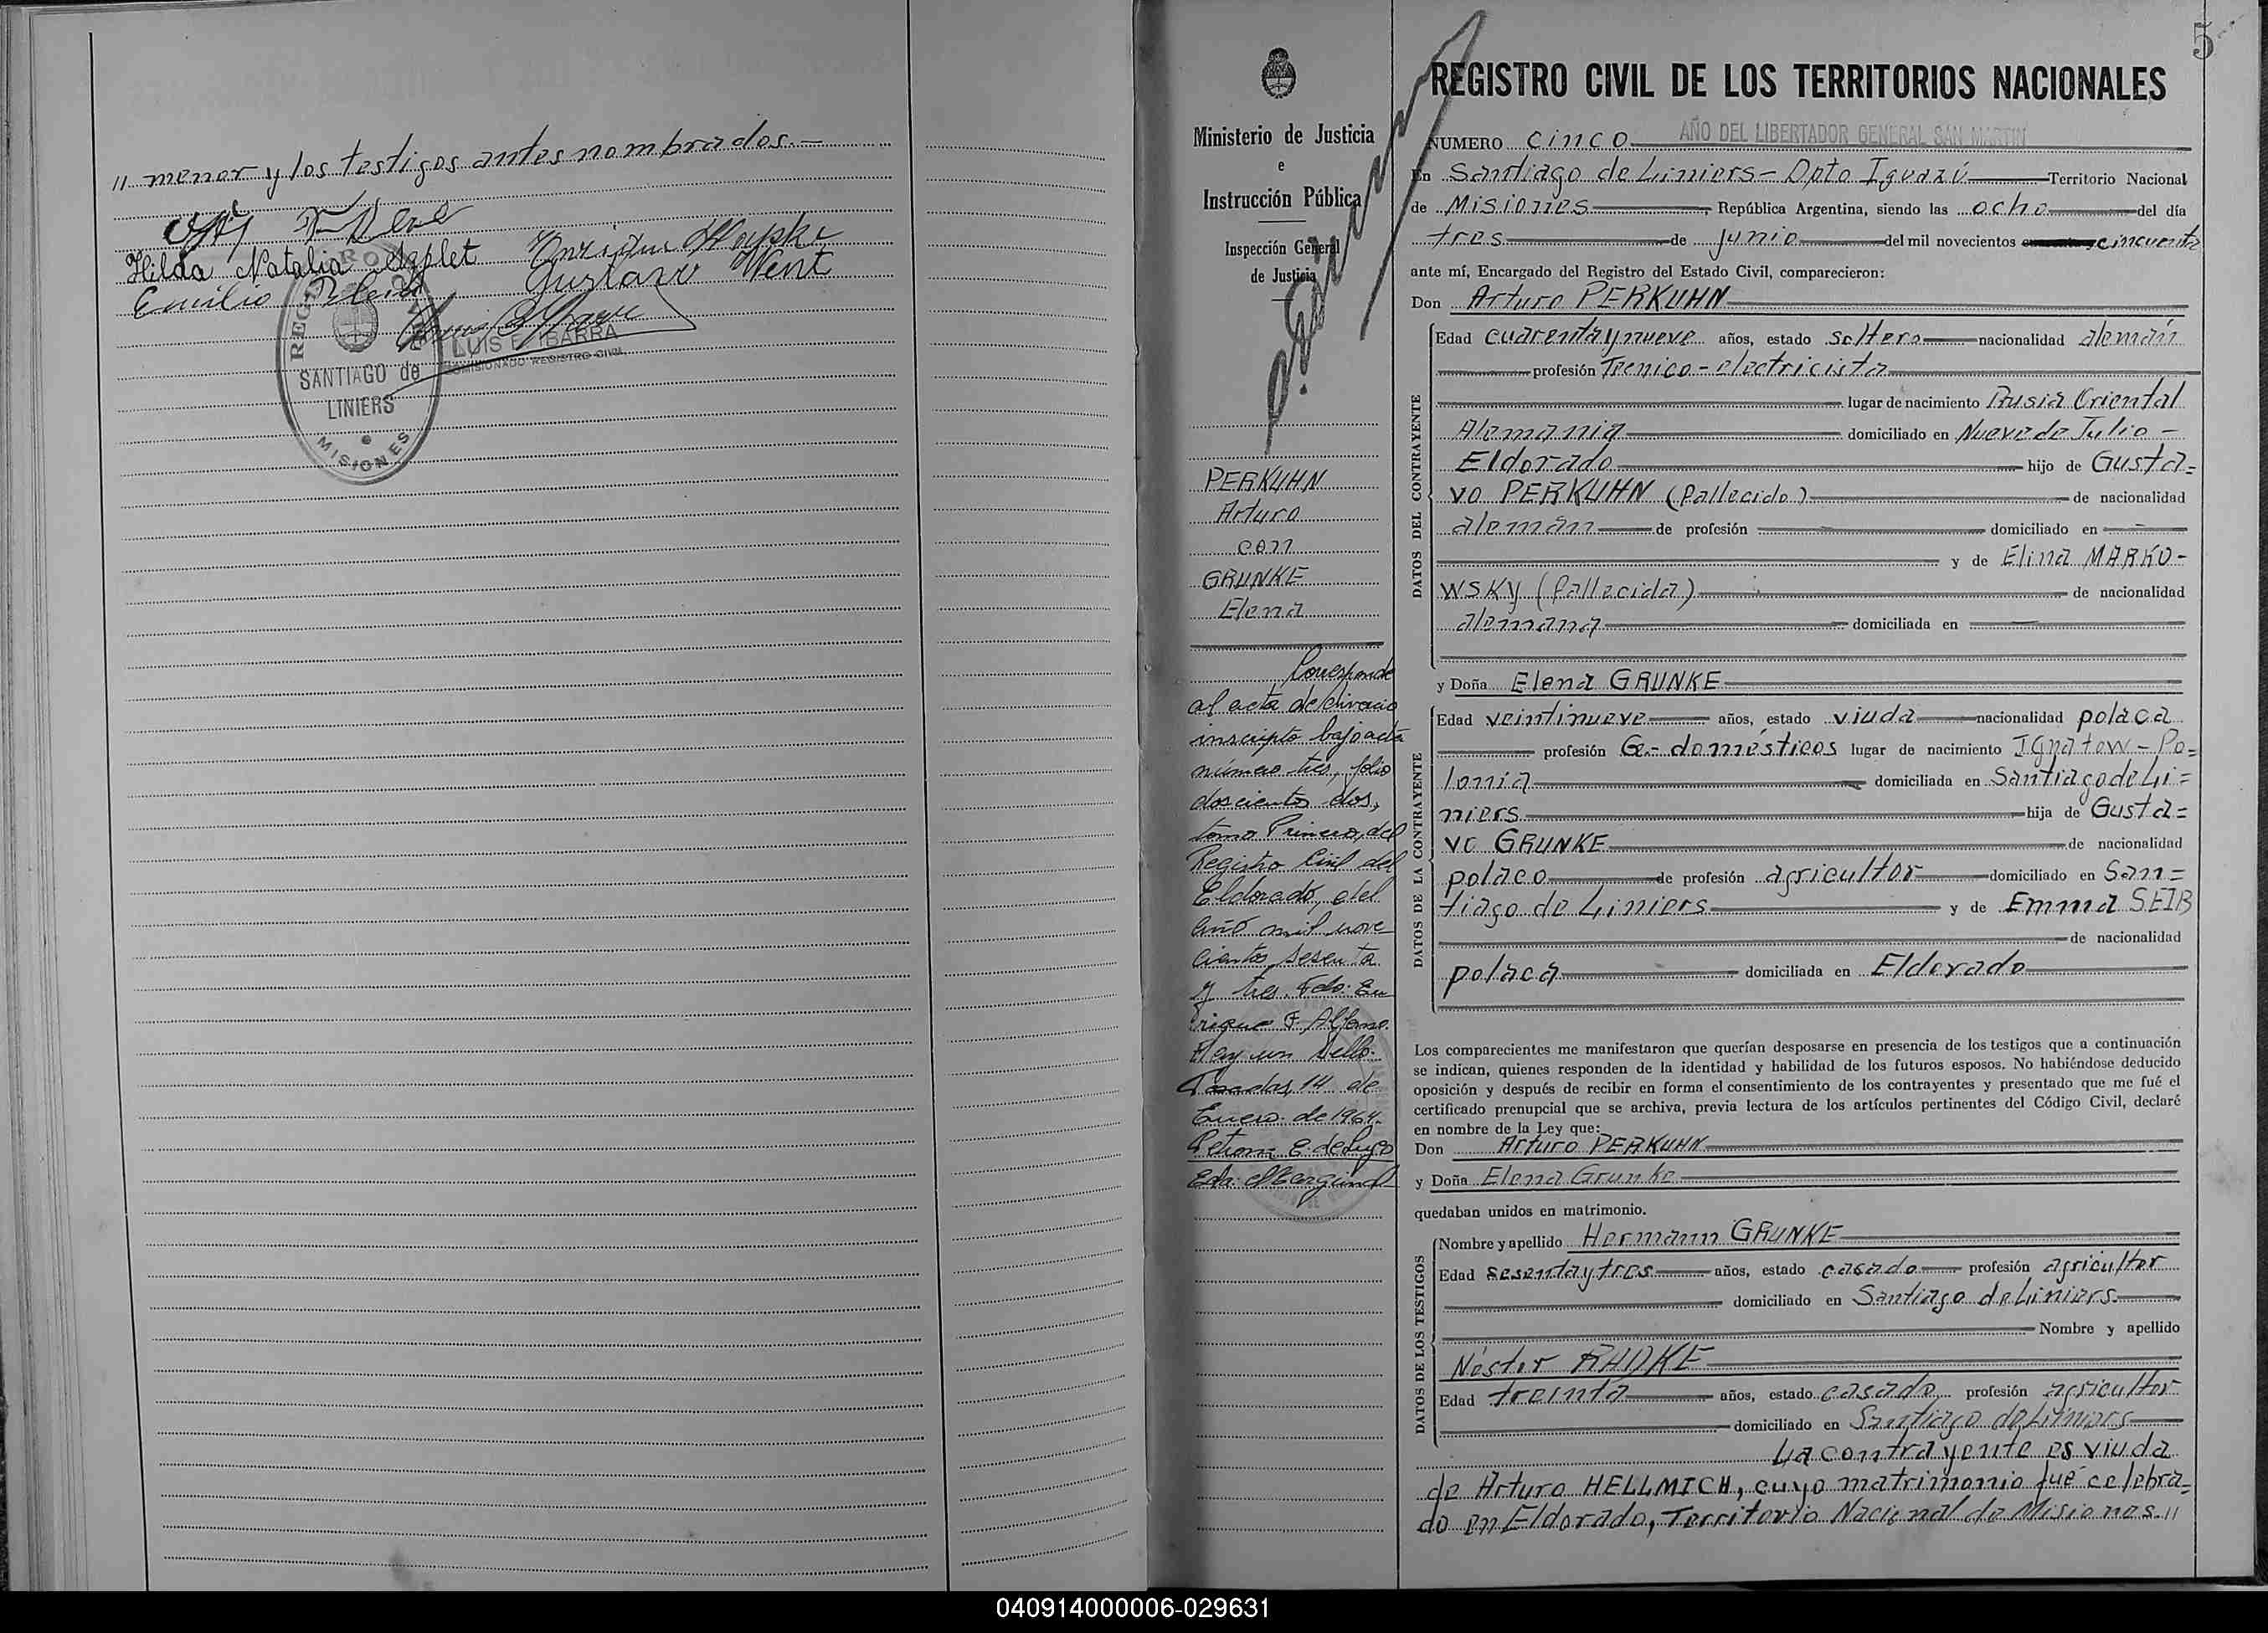 " menor y los testigos antes nombrados.-
Hilda Natalia Applet
Gustavo Went
Emilio
LUIS E. IBARRA
COMISIONADO REGISTRO CIVIL
SANTIAGO de
LINIERS
MISIONES
Ministerio de Justicia
e
Instrucción Pública
Inspección General
de Justicia
PERKUHN
Arturo
con
GRUNKE
Elena
Corresponde
al acta de divorcio
inscripto bajo acta
número tres, folio
doscientos dos,
tomo Primero, del
Registro Civil del
Eldorado, del
año mil nove
cientos sesenta
y tres. Fdo: En
rique F. Alfonso.
Hay un sello.
Posadas, 14 de
Enero de 1964.
5
REGISTRO CIVIL DE LOS TERRITORIOS NACIONALES
AÑO DEL LIBERTADOR GENERAL SAN MARTIN
NUMERO cinco
En Santiago de Liniers- Dpto Iguazú Territorio Nacional
de Misiones, República Argentina, siendo las ocho del día
tres de junio del mil novecientos cincuenta
ante mí, Encargado del Registro del Estado Civil, comparecieron:
Don Arturo PERKUHN
DATOS DEL CONTRAYENTE
Edad cuarentaynueve años, estado soltero nacionalidad alemán
profesión Tecnico-electricista
lugar de nacimiento Prusia Oriental
Alemania domiciliado en Nueve de Julio -
Eldorado hijo de Gusta=
vo PERKUHN (fallecido) de nacionalidad
alemán de profesión domiciliado en
y de Elina MARKO-
WSKY (fallecida) de nacionalidad
alemana domiciliada en
y Doña Elena GRUNKE
DATOS DE LA CONTRAYENTE
Edad veintinueve años, estado viuda nacionalidad polaca
profesión Q.- domésticos lugar de nacimiento Ignatow - Po=
lonia domiciliada en Santiago de Li=
niers hija de Gusta=
vo GRUNKE de nacionalidad
polaco de profesión agricultor domiciliado en San=
tiago de Liniers y de Emma SEIB
de nacionalidad
polaca domiciliada en Eldorado
Los comparecientes me manifestaron que querían desposarse en presencia de los testigos que a continuación
se indican, quienes responden de la identidad y habilidad de los futuros esposos. No habiéndose deducido
oposición y después de recibir en forma el consentimiento de los contrayentes y presentado que me fué el
certificado prenupcial que se archiva, previa lectura de los artículos pertinentes del Código Civil, declaré
en nombre de la Ley que:
Don Arturo PERKUHN
y Doña Elena Grunke
quedaban unidos en matrimonio.
DATOS DE LOS TESTIGOS
Nombre y apellido Hermann GRUNKE
Edad sesentaytres años, estado casado profesión agricultor
domiciliado en Santiago de Liniers.
Nombre y apellido
Néstor RADKE
Edad treinta años, estado casado profesión agricultor
domiciliado en Santiago de Liniers
La contrayente es viuda
de Arturo HELLMICH, cuyo matrimonio fué celebra=
do en Eldorado, Territorio Nacional de Misiones. "
040914000006-029631